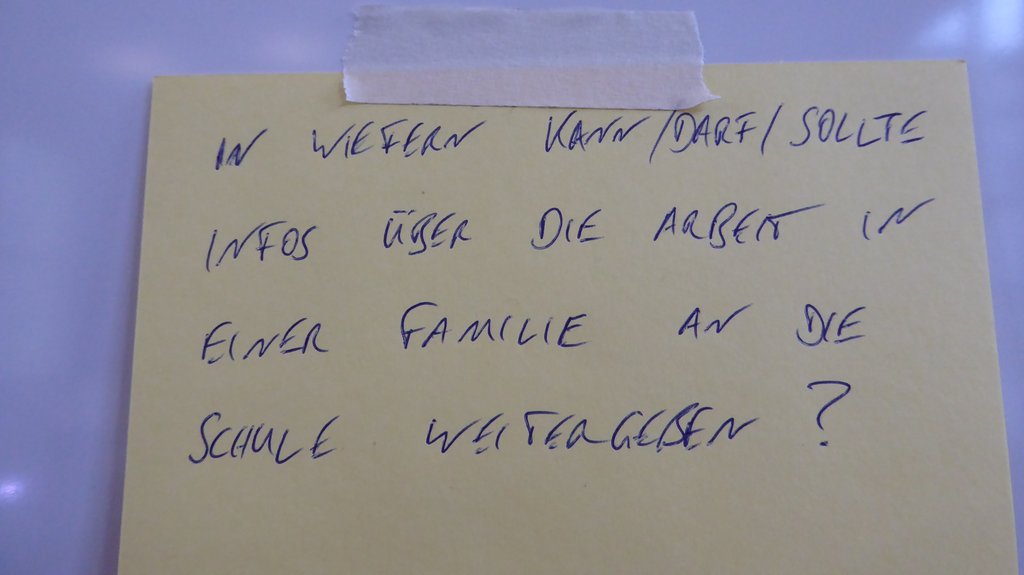 IN WIEFERN KANN/DARF/SOLLTE
INFOS ÜBER DIE ARBEIT IN
EINER FAMILIE AN DIE
SCHULE WEITERGEBEN?